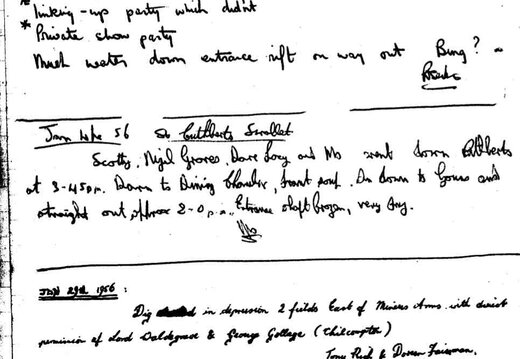 * linking-up party which didn't
* Private show party
Much water down entrance rift on way out Bung?
Jan 56 St Cuthberts Swallet
Scotty, Nigel Groves, Dave and Me went down Cuthberts
at 3-45pm. Down to Dining Chamber, drank soup. On down to and
straight out approx 2-0 Entrance shaft frozen, very dry.
JAN 29th 1956 :
Dig in depression 2 fields East of Miners Arms with direct
permission of Lord Waldegrave & George Gollege (Chilcompton)
Tony Rich & Darren Fairman.